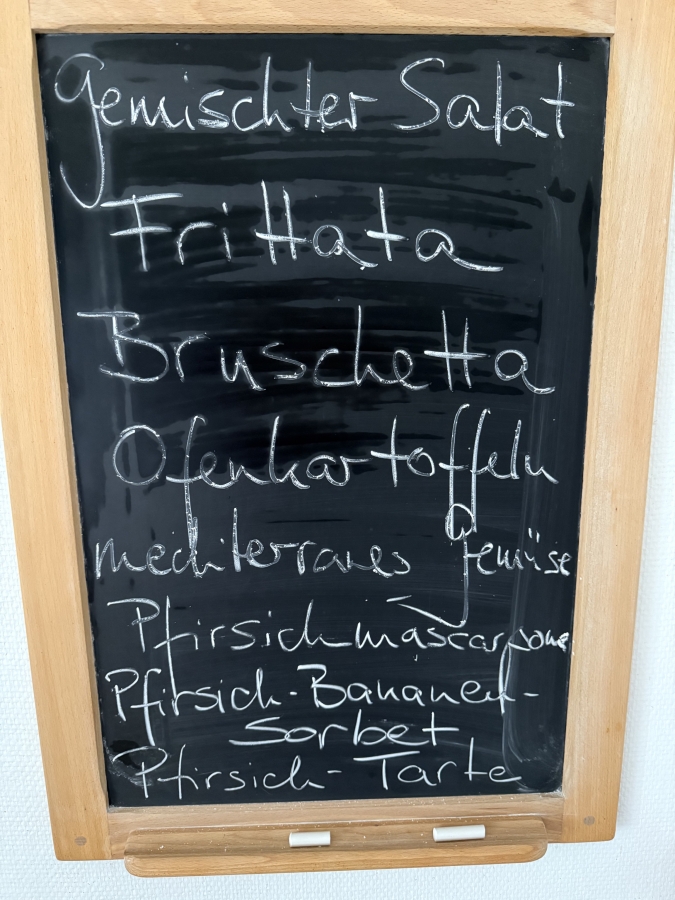 Gemischter Salat
Frittata
Bruschetta
Ofenkartoffeln
mediterranes Gemüse
Pfirsichmascarpone
Pfirsich-Bananen-
Sorbet
Pfirsich-Tarte